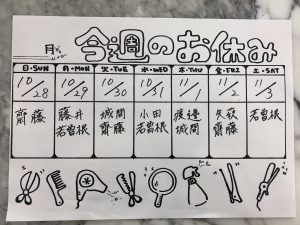 月 今週のお休み
日・SUN 月・MON 火・TUE 水・WED 木・THU 金・FRI 土・SAT
10/28 10/29 10/30 10/31 11/1 11/2 11/3
齋藤 藤井 城間 小田 渡邉 矢萩 若曽根
若曽根 齋藤 若曽根 城間 齋藤